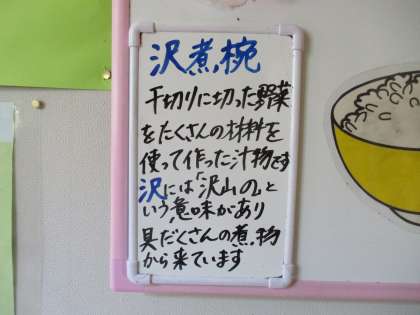 沢煮椀
千切りに切った野菜
をたくさんの材料を
使って作った汁物です
沢には「沢山の」と
いう意味があり
具だくさんの煮物
から来ています